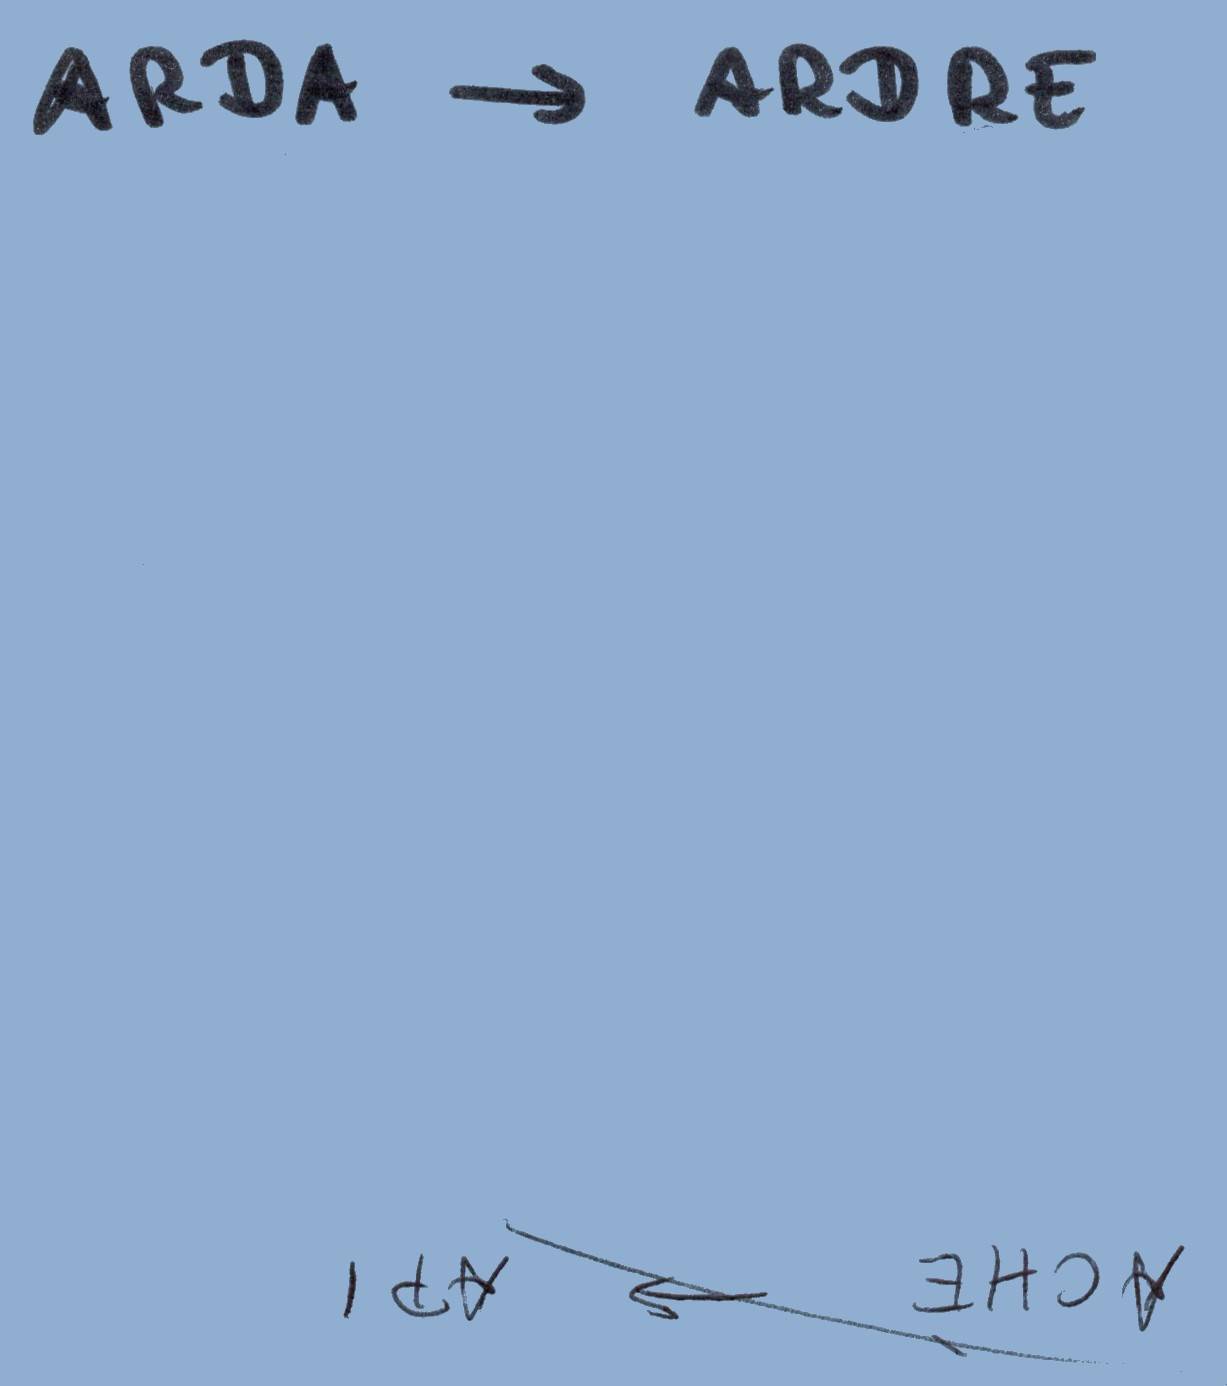 ARDA → ARDRE
ACHE → API